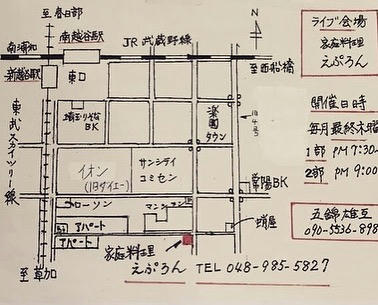 至春日部
南越谷駅
南浦和
JR武蔵野線
N
至西船橋
新越谷駅
東口
埼玉りそな
BK
楽園
タウン
旧4号
東武スカイツリー線
イオン
(旧ダイエー)
サンシティ
コミセン
常陽BK
ローソン
マンション
アパート
アパート
蛸屋
家庭料理
えぷろん TEL 048-985-5827
至草加
ライブ会場
家庭料理
えぷろん
開催日時
毎月最終木曜
1部 PM7:30-
2部 PM9:00
五錦雄互
090-5536-898